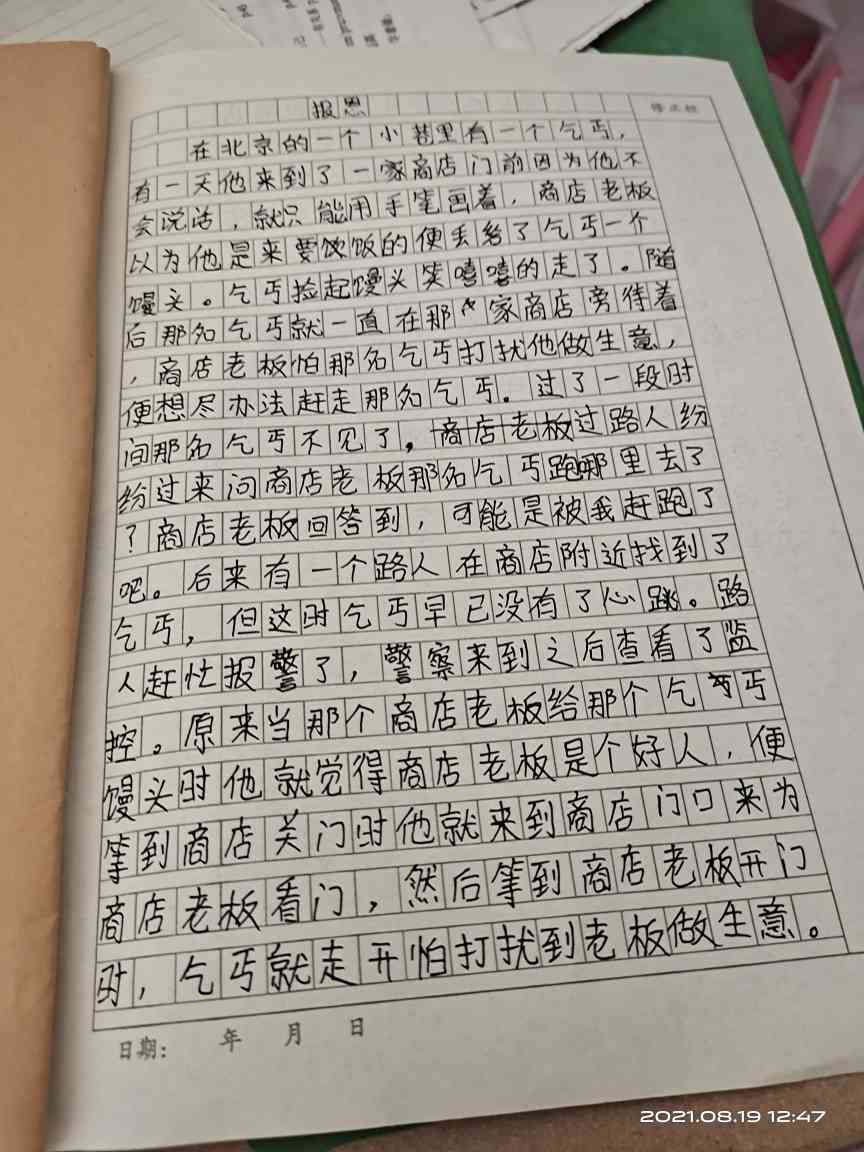 报恩
在北京的一个小巷里有一个乞丐,
有一天他来到了一家商店门前因为他不
会说话,就只能用手笔画着,商店老板
以为他是来要饮饭的便丢给了乞丐一个
馒头。乞丐捡起馒头笑嘻嘻的走了。随
后那名乞丐就一直在那家商店旁待着
,商店老板怕那名乞丐打扰他做生意,
便想尽办法赶走那名乞丐。过了一段时
间那名乞丐不见了,商店老板过路人纷
纷过来问商店老板那名乞丐跑哪里去了
?商店老板回答到,可能是被我赶跑了
吧。后来有一个路人在商店附近找到了
乞丐,但这时乞丐早已没有了心跳。路
人赶忙报警了,警察来到之后查看了监
控。原来当那个商店老板给那个乞丐
馒头时他就觉得商店老板是个好人,便
等到商店关门时他就来到商店门口来为
商店老板看门,然后等到商店老板开门
时,乞丐就走开怕打扰到老板做生意。
日期: 年 月 日
2021.08.19 12:47